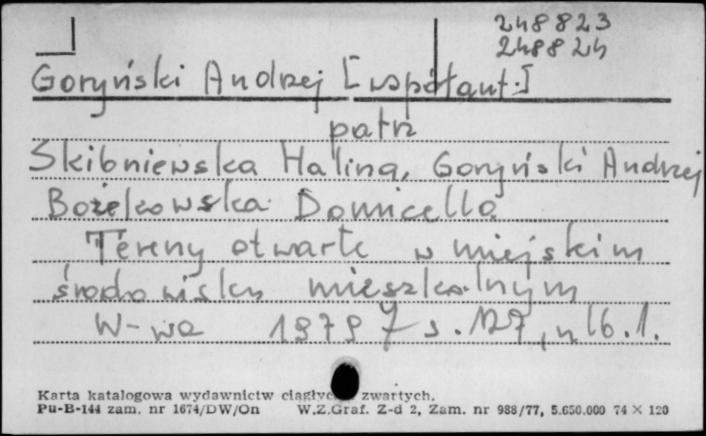 248823
248824
Goryński Andrzej [współaut.]
patrz
Skibniewska Halina, Goryński Andrzej
Bożekowska Domicella
Tereny otwarte w miejskim
środowisku mieszkalnym
W-wa 1979 s. 127,
Karta katalogowa wydawnictw ciągłych zwartych.
Pu-B-144 zam. nr 1674/DW/On W.Z.Graf. Z-d 2, Zam. nr 988/77, 5.650.000 74 × 120